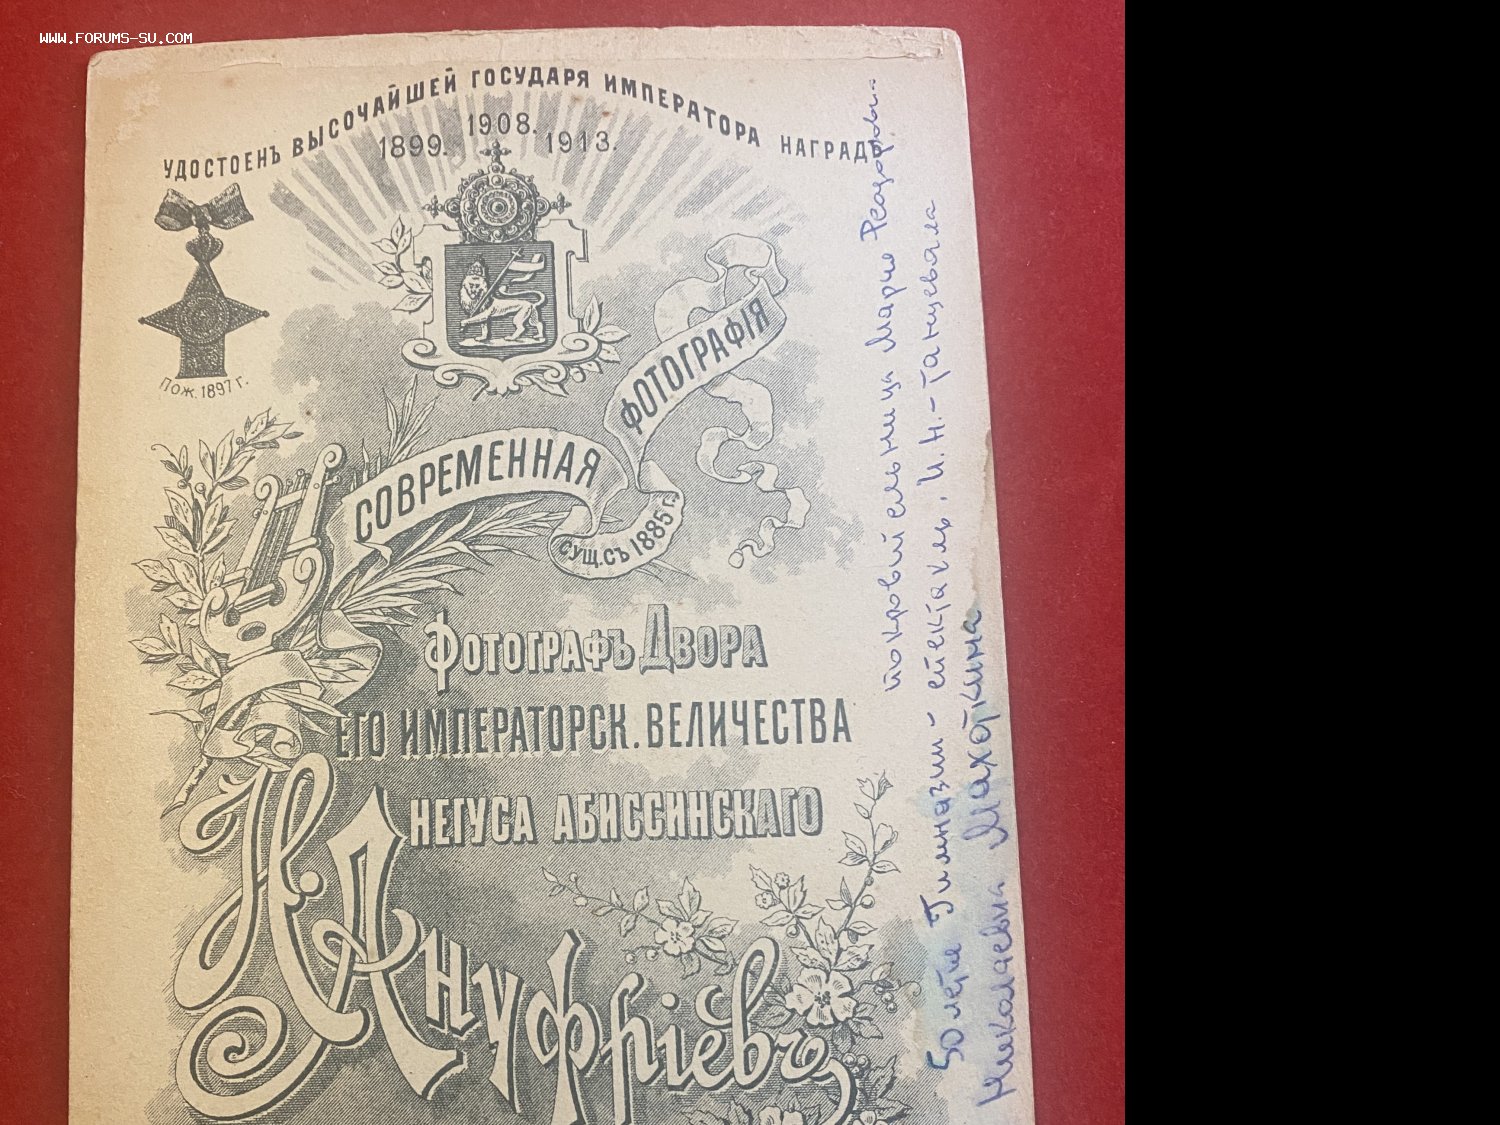 WWW.FORUMS-SU.COM
УДОСТОЕНЪ ВЫСОЧАЙШЕЙ ГОСУДАРЯ ИМПЕРАТОРА НАГРАДЪ
1899. 1908. 1913.
Пож. 1897 г.
СОВРЕМЕННАЯ
ФОТОГРАФІЯ
СУЩ. СЪ 1885 г.
ФОТОГРАФЪ ДВОРА
ЕГО ИМПЕРАТОРСК. ВЕЛИЧЕСТВА
НЕГУСА АБИССИНСКАГО
Н. Ануфріевъ
покровительница Мария Федоровн.
50 летие Гимназии - спектакль, И. Н. - танцевала
Николаевна Махоткина